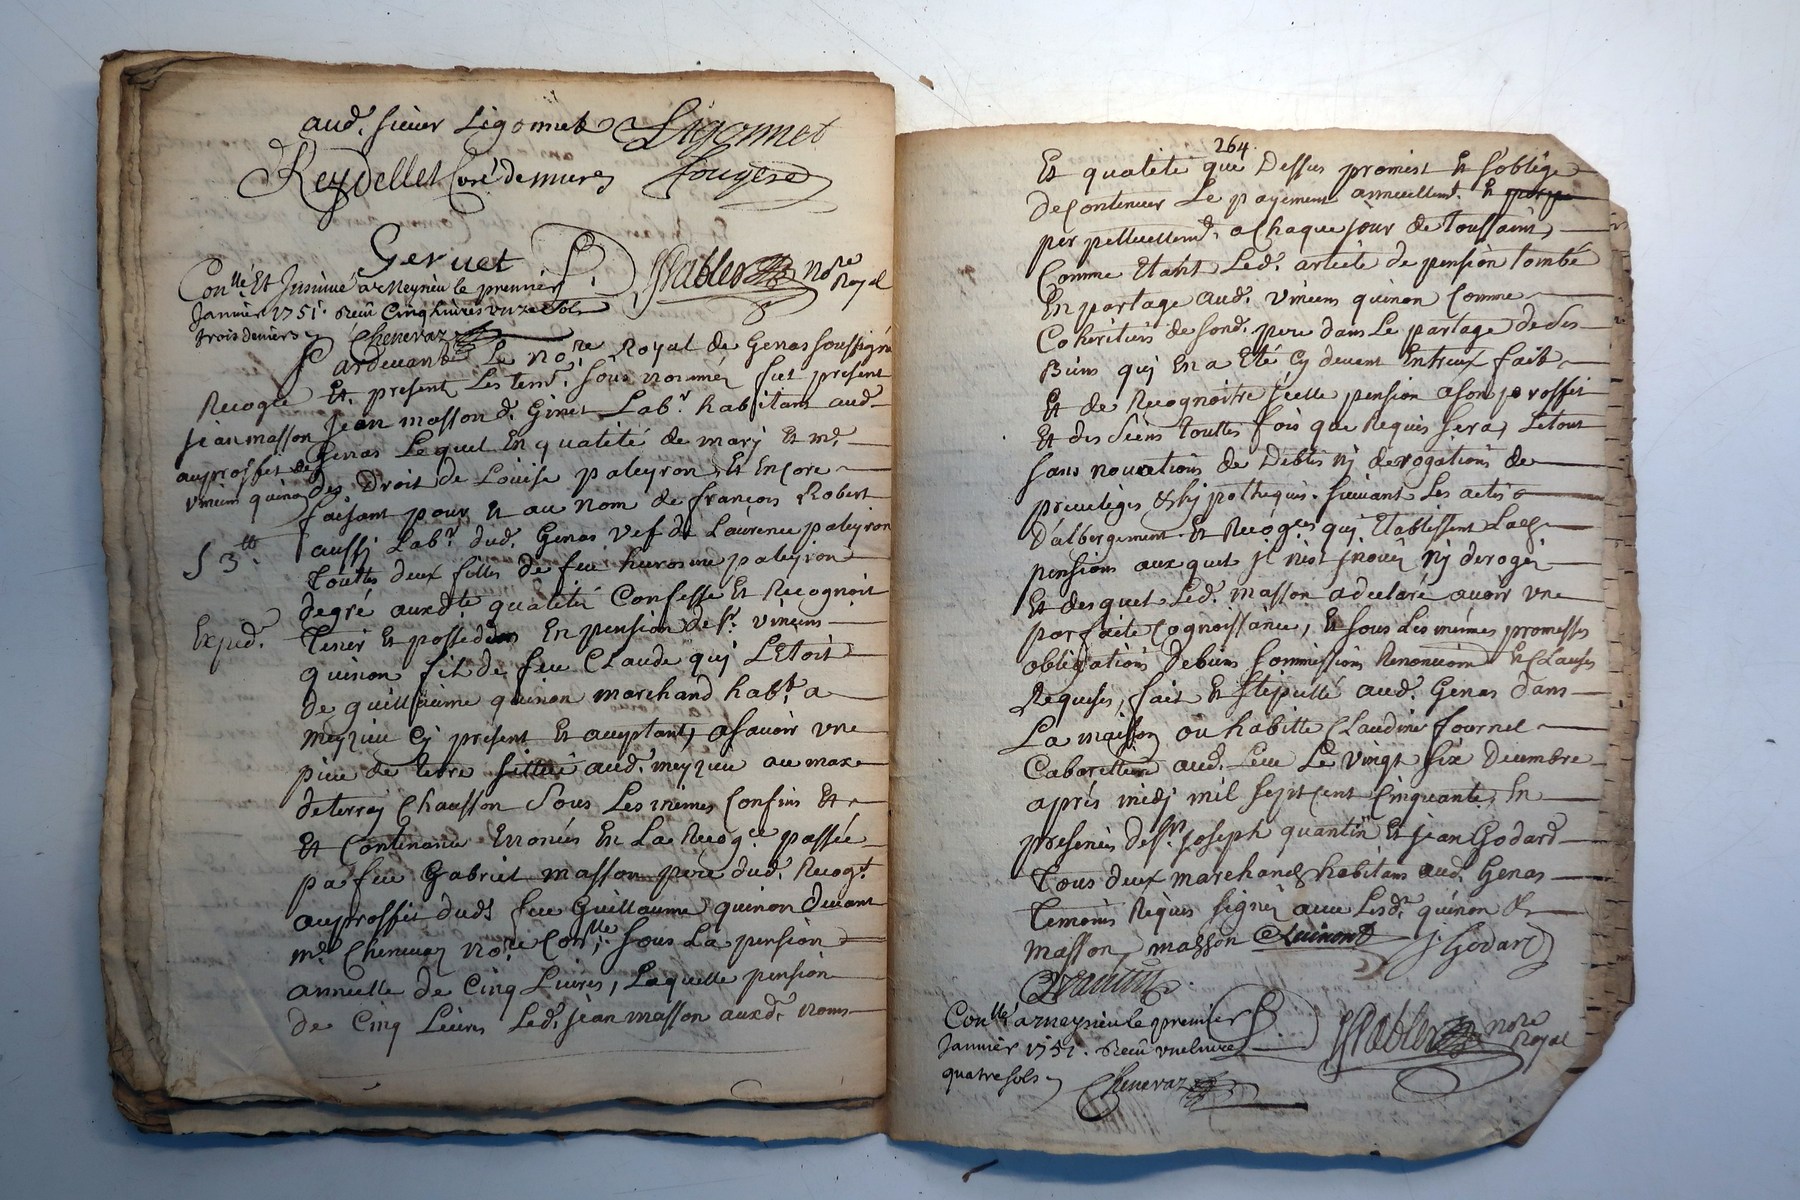 aud. sieur Ligonnet Ligonnet
Reydellet Curé de mures fougere
Gervet
Con.llé Et Jnsinué a Meyzieu le premier
Janvier 1751. Receu Cinq livres unze sols
trois deniers Chenevaz
no.re Royal
Pardevant Le no.re Royal de Genas soussigné
Et present Les tem. sous nommés fut present
jean masson d. Ginet Lab.r habitant aud.
Genas Lequel En qualité de marj Et m.e
des Droit de Louise paleyron Et Encore
faisant pour Et au nom de françois Robert
aussj Lab.r dud. Genas vef de Laurence paleyron
Touttes deux filles de feu hierosme paleyron
degré auxd.te qualités Confesse Et Recognoit
Tenir Et possedder En pension de s.r vincens
quinon fils de feu Claude quj L'Etoit
de guillaume quinon marchand hab.t a
meyzieu Cj présent Et acceptant, asavoir une
piece de terre scittuée aud. meyzieu au mas
de terraj Chausson Sous Les mêmes Confins Et
Et Contenance Enoncés En La Recog.ce passée
pa feu Gabriel masson pere dud. Recog.t
auproffit dud. feu Guillaume quinon devant
m.e Chenevaz no.re sous La pension
annuelle de Cinq Livres, Laquelle pension
de Cinq Livres Led. jean masson auxd. noms
Recog.ce
jean masson
auproffit de
vincens quinon
5 3.tt
Exped.
264.
Et qualité que Dessus promest Et s'oblige
de Continuer Le payement annuellem.t Et perpe
perpettuellem.t a Chaque jour de toussaint
Comme Etant Led. article de pension tombé
En partage aud. vincens quinon Comme
Coheritiers de fond. pere dans Le partage de ses
Biens quj En a Eté Cy devant Entreux fait
Et de Recognoitre jcelle pension a son proffit
Et des siens touttes fois que Requis sera, Le tout
sans novations de Debtes nj derogations de
privileges & hjpotheques suivant Les actes
D'albergement Et Recog.ces quj Etablissent Lad.
pensions auxquels jl n'est jnnové nj derogé
Et desquels Led. masson a declaré avoir une
parfaite Cognoissance, Et sous Les mêmes promesses
obligations de biens soumissions Renonciations Et Clauses
Requises, fait Et stipullé aud. Genas dans
La maison ou habitte Claudine fournel
Cabarettiere aud. Lieu Le vingt six Decembre
aprés midj mil sept cent Cinquante, En
presences de s.rs joseph quantin Et jean Godard
Tous deux marchands habitans aud. Genas
Temoins Requis signés avec Lesd. quinon &
masson, masson Quinon J. Godard
Quantin
Con.llé a Meyzieu le premier
Janvier 1751. Receu une livre
quatre sols Chenevaz
no.re Royal